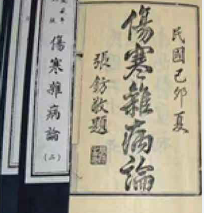 民國己卯夏
傷寒雜病論
張鈁敬題
傷寒雜病論
（二）